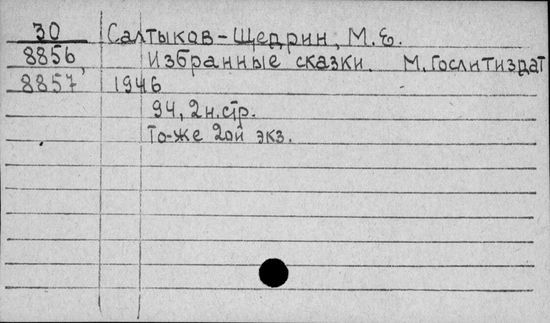 30 Салтыков-Щедрин, М.Е.
8856, Избранные сказки. М. Гослитиздат
8857 1946
94, 2н.стр.
То-же 2ой экз.